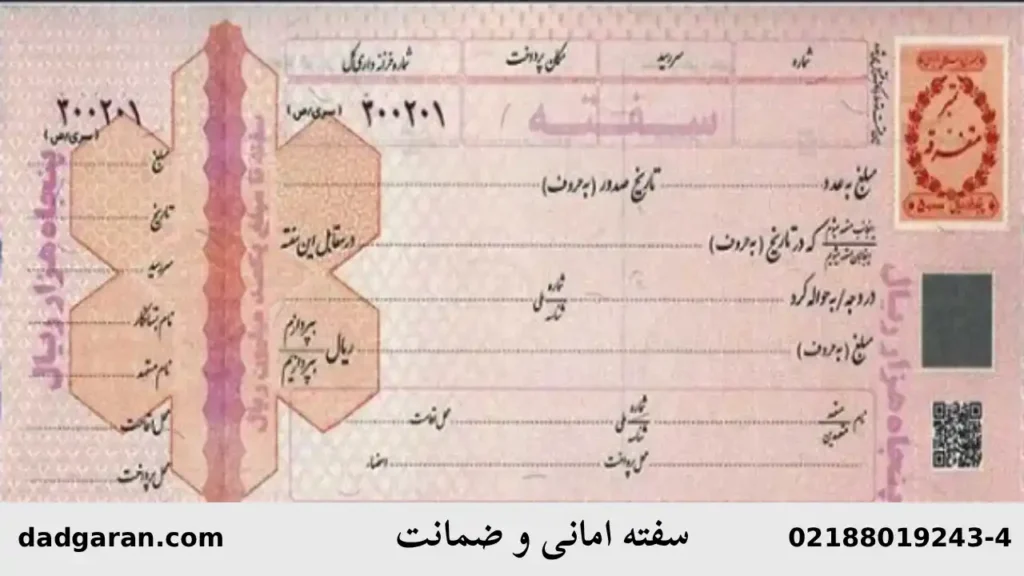 شماره سررسید مکان پرداخت شماره خزانه داری کل
سفته
۳۰۰۲۰۱ (سری/ص)
۳۰۰۲۰۱ (سری/ص)
مبلغ به عدد تاریخ صدور (به حروف)
که در تاریخ (به حروف) در مقابل این سفته
در وجه/به حواله کرد شماره ملی شناسه
مبلغ (به حروف) ریال بپردازم بپردازیم
نام متعهد متعهدین شماره ملی شناسه محل اقامت
محل پرداخت امضاء
مبلغ
تاریخ
سررسید
نام بستانکار
نام متعهد
محل اقامت
محل پرداخت
سفته تا مبلغ یکصد میلیون ریال
پنجاه هزار ریال
پنجاه هزار ریال
تمبر
متفرقه
dadgaran.com
سفته امانی و ضمانت
02188019243-4